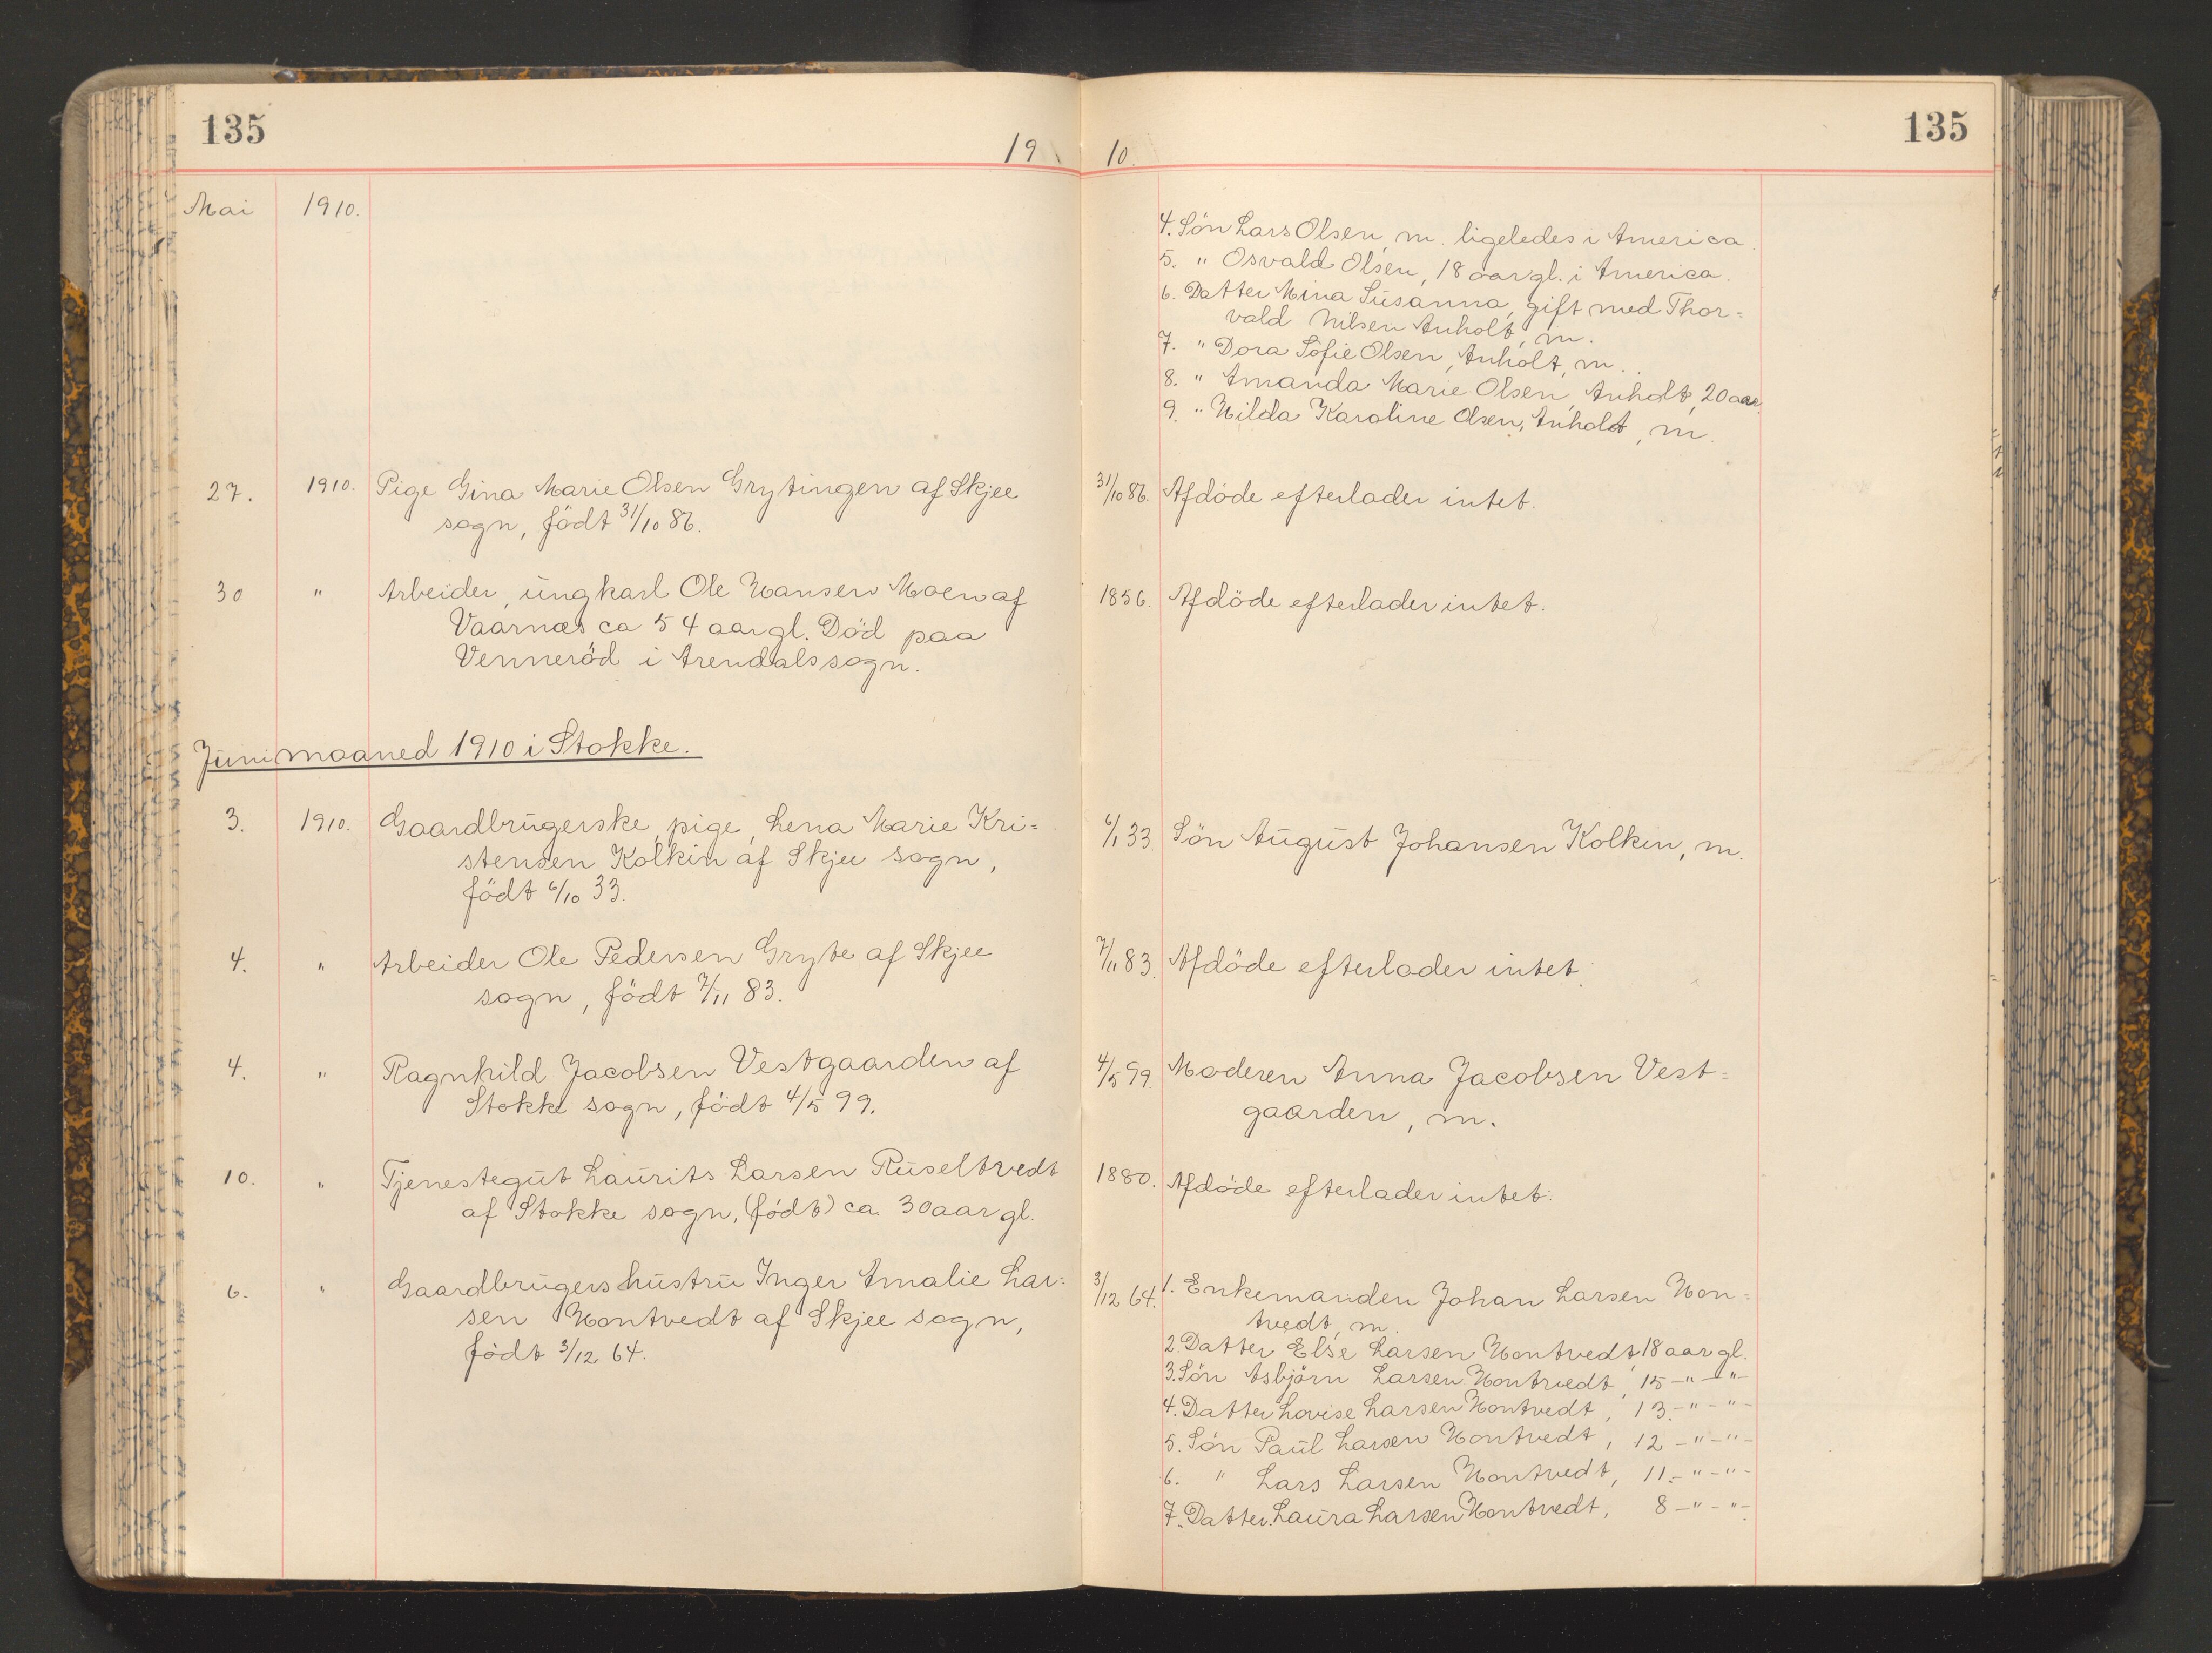 135
19
10.
135
Mai 1910.
4. Sön Lars Olsen, m. ligeledes i America.
5. " Osvald Olsen, 18 aar gl. i America.
6. Datter Mina Susanna, gift med Thor=
vald Nilsen Anholt, m.
7. " Dora Sofie Olsen, Anholt, m.
8. " Amanda Marie Olsen, Anholt, 20 aar.
9. " Hilda Karoline Olsen, Anholt, m.
27. 1910. Pige Gina Marie Olsen Grytingen af Skjee
sogn, födt 31/10 86.
31/10 86. Afdöde efterlader intet.
30 " Arbeider, ungkarl Ole Hansen Moen af
Vaarnæs ca 54 aar gl. Död paa
Venneröd i Arendals sogn.
1856. Afdöde efterlader intet.
Juni maaned 1910 i Stokke.
3. 1910. Gaardbrugerske, pige, Lena Marie Kri=
stensen Kolkin af Skjee sogn,
födt 6/10 33.
6/1 33. Sön August Johansen Kolkin, m.
4. " Arbeider Ole Pedersen Gryte af Skjee
sogn, födt 7/11 83.
7/11 83. Afdöde efterlader intet.
4. " Ragnhild Jacobsen Vestgaarden af
Stokke sogn, födt 4/5 99.
4/5 99. Moderen Anna Jacobsen Vest=
gaarden, m.
10. " Tjenestegut Laurits Larsen Ruseltvedt
af Stokke sogn, (födt) ca. 30 aar gl.
1880. Afdöde efterlader intet.
6. " Gaardbrugers hustru Inger Amalie Lar=
sen Hontvedt af Skjee sogn,
födt 3/12 64.
3/12 64. 1. Enkemanden Johan Larsen Hon=
tvedt, m.
2. Datter Else Larsen Hontvedt, 18 aar gl.
3. Sön Asbjörn Larsen Hontvedt, 15 -"-"-
4. Datter Lovise Larsen Hontvedt, 13 -"-"-
5. Sön Paul Larsen Hontvedt, 12 -"-"-
6. " Lars Larsen Hontvedt, 11 -"-"-
7. Datter Laura Larsen Hontvedt, 8 -"-"-